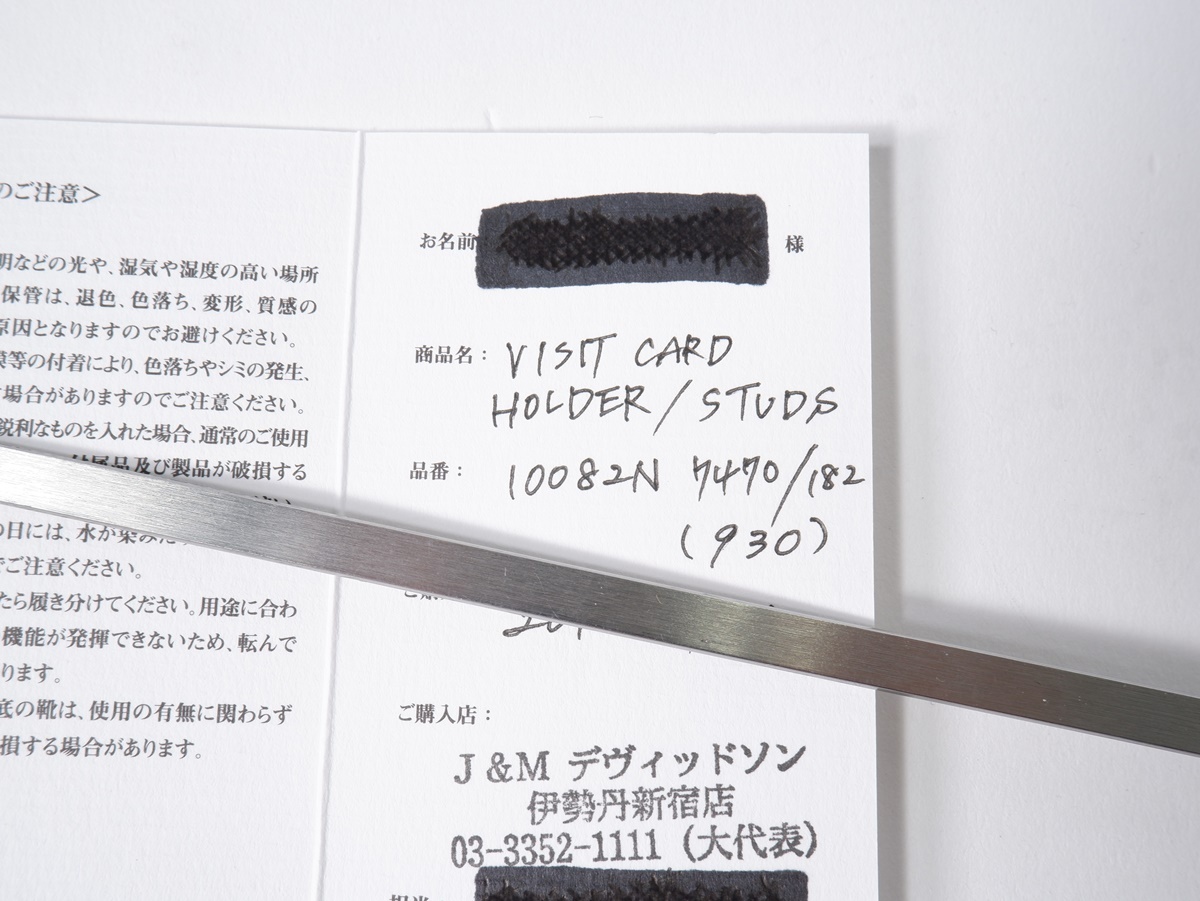 のご注意＞
明などの光や、湿気や湿度の高い場所
保管は、退色、色落ち、変形、質感の
原因となりますのでお避けください。
等の付着により、色落ちやシミの発生、
場合がありますのでご注意ください。
鋭利なものを入れた場合、通常のご使用
付属品及び製品が破損する
の日には、水が染み
でご注意ください。
たら履き分けてください。用途に合わ
機能が発揮できないため、転んで
ります。
底の靴は、使用の有無に関わらず
損する場合があります。
お名前 様
商品名： VISIT CARD
HOLDER / STUDS
品番： 10082N 7470/182
(930)
ご購入店：
J&M デヴィッドソン
伊勢丹新宿店
03-3352-1111（大代表）